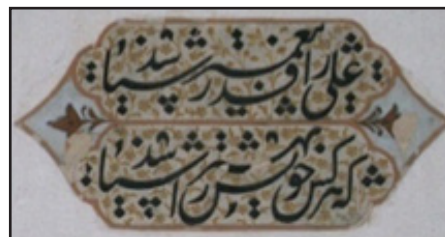 علی را قدر پیغمبر شناسد
که هر کس خویش را بهتر شناسد